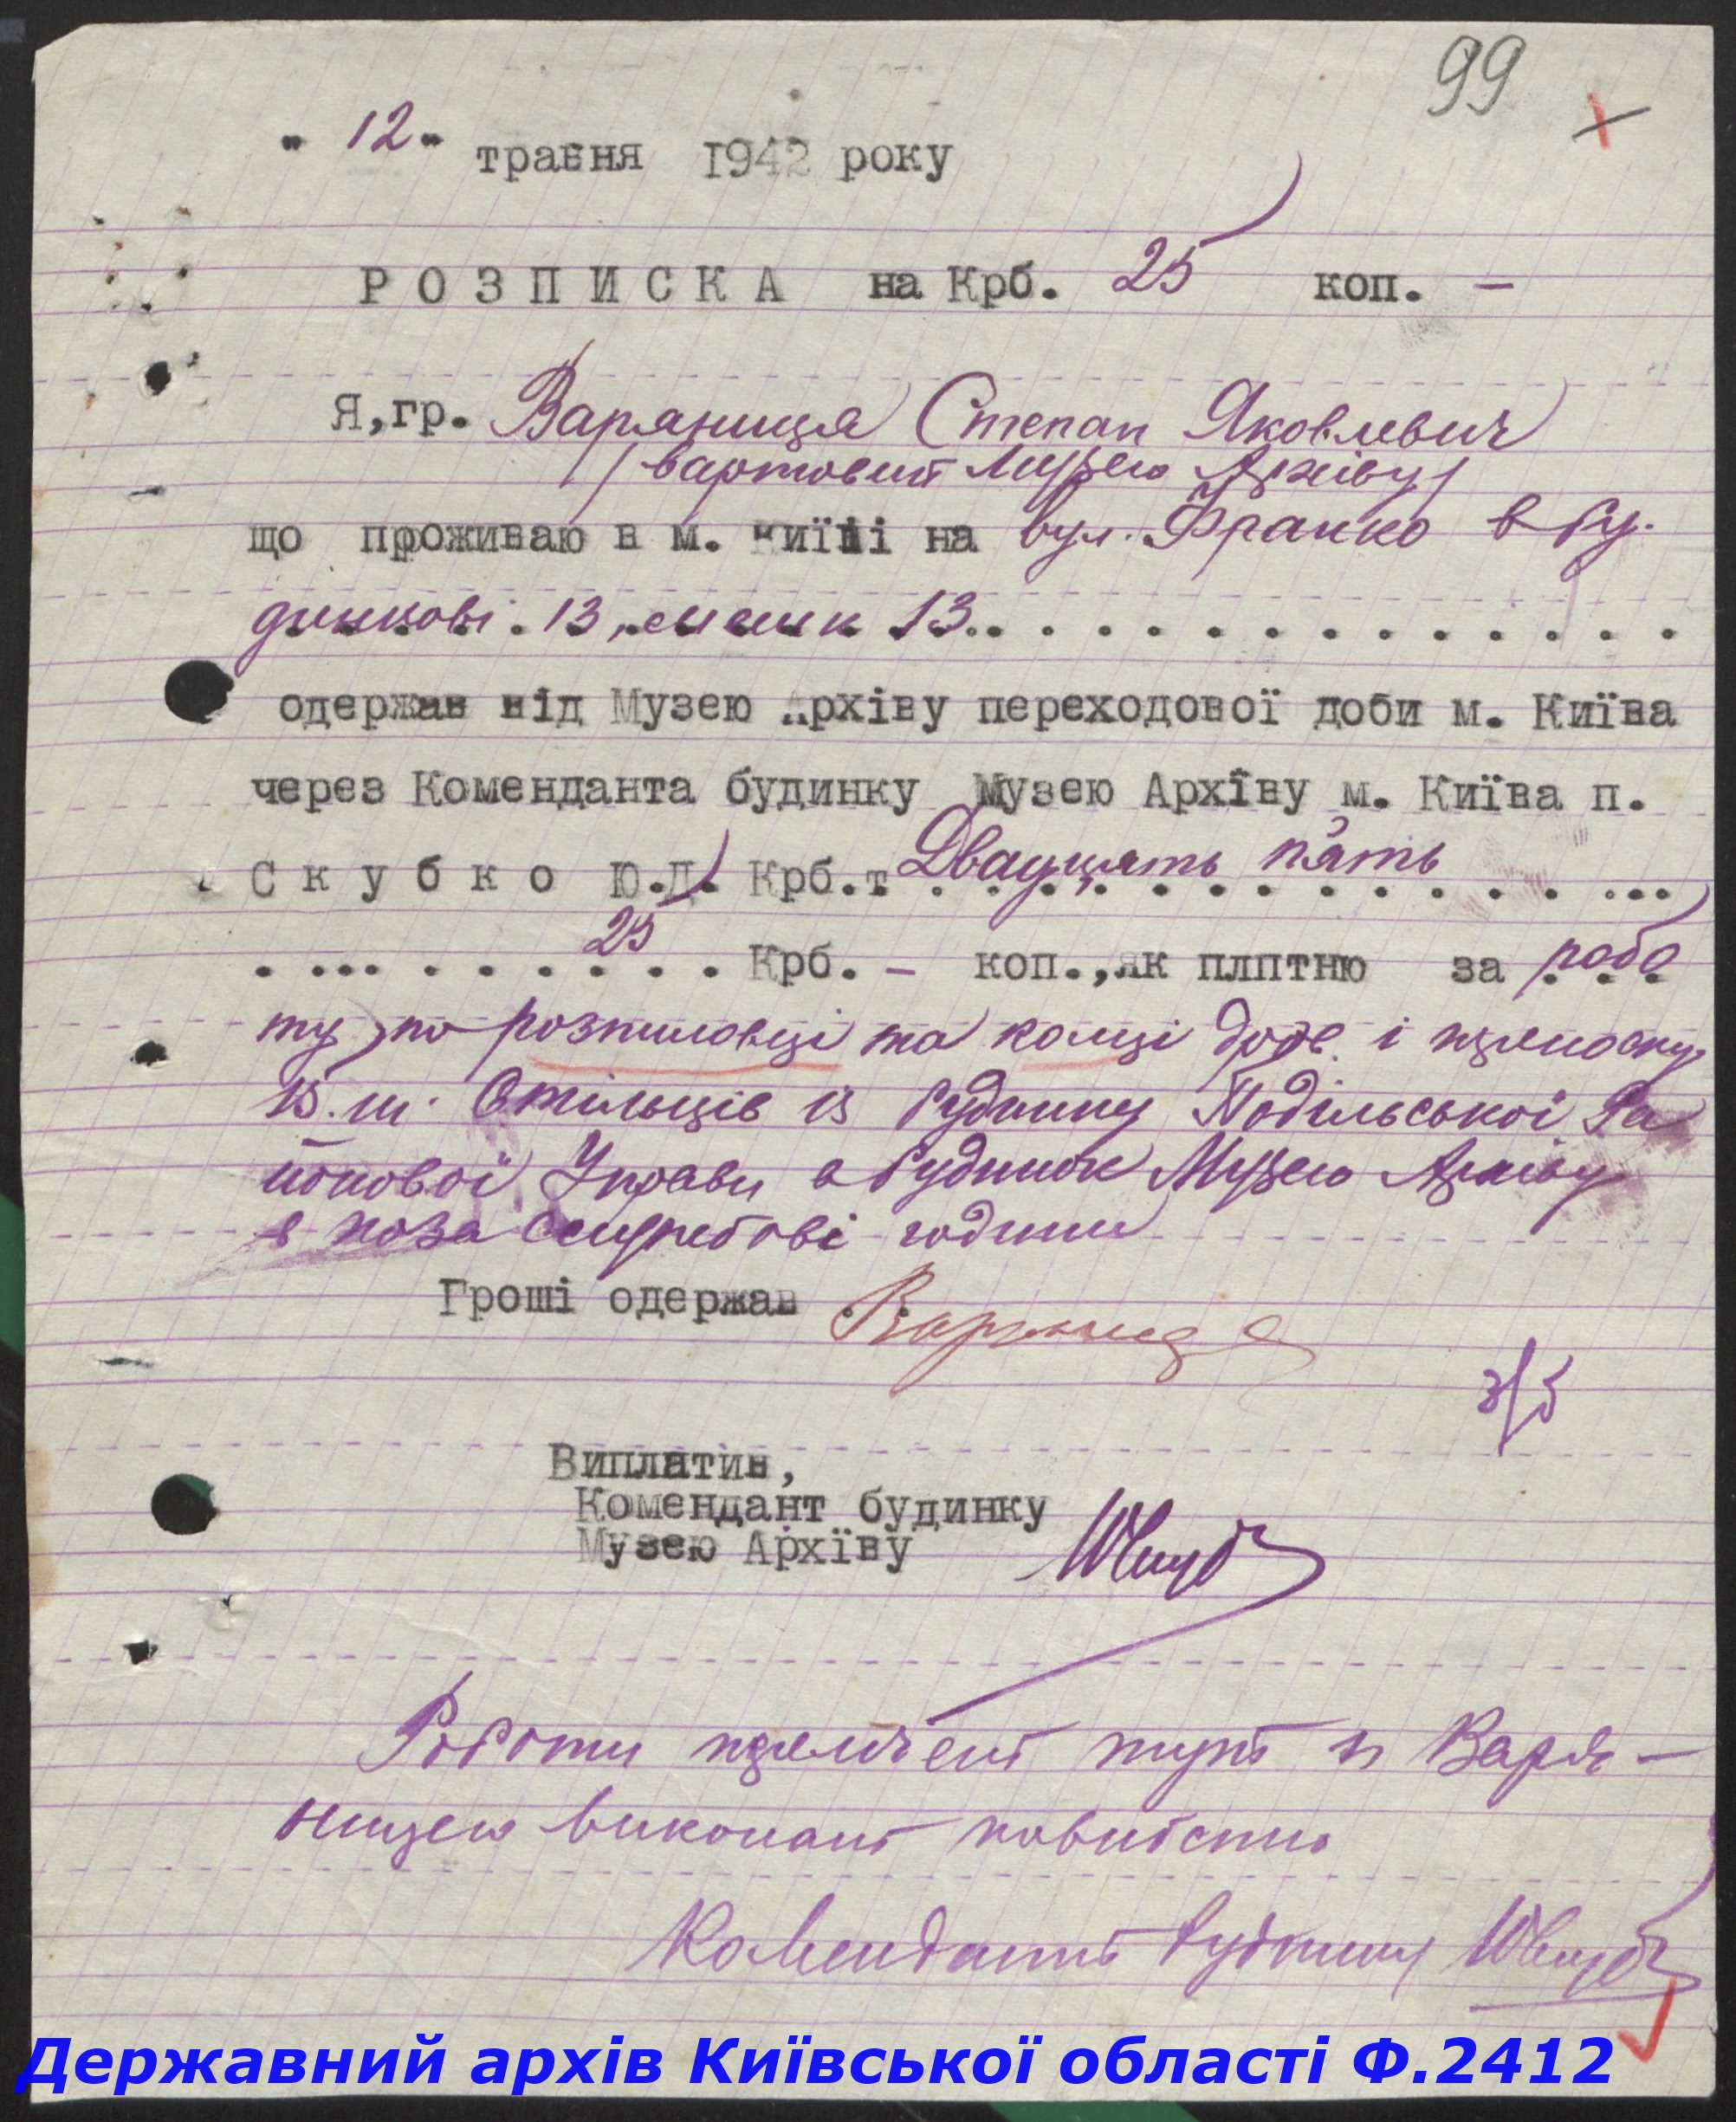 99
" 12 " травня 1942 року
РОЗПИСКА на Крб. 25 коп. –
Я, гр. Варяниця Степан Яковлевич
/вартовий Музею Архіву/
що проживаю в м. Київі на вул. Франко в бу-
динкові 13, 13 . . . . . . . . . . . . .
одержав від Музею Архіву переходової доби м. Київа
через Коменданта будинку Музею Архіву м. Київа п.
Скубко Ю.Д. Крб. Двадцять п'ять . . .
. . . . . . . 25 Крб. – коп., як плптню за робо
ту по розпиловці та колці дров і
15 ш. стільців із будинку Подільської Ра
йонової Управи в будинок Музею Архіву
в поза службові години
Гроші одержав Варяница
Виплатив,
Комендант будинку
Музею Архїву
Роботи Варя-
ницею виконані повністю
Комендант будинку
Державний архів Київської області Ф.2412